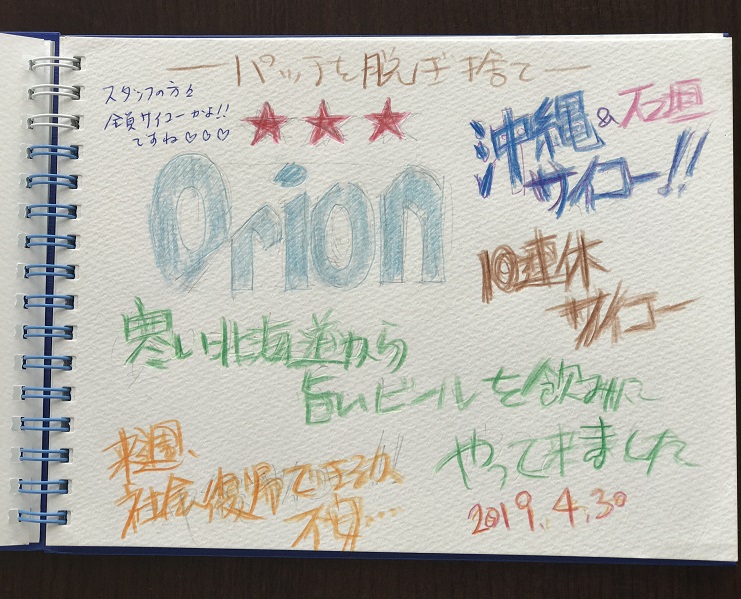 ーパッチを脱ぎ捨てー
スタッフの方々
全員サイコーかよ!!
ですね♡♡♡
★★★
Orion
沖縄&石垣
サイコー!!
10連休
サイコー
寒い北海道から
旨いビールを飲みに
やって来ました
来週、
社会復帰できるか、
不安…
2019.4.30